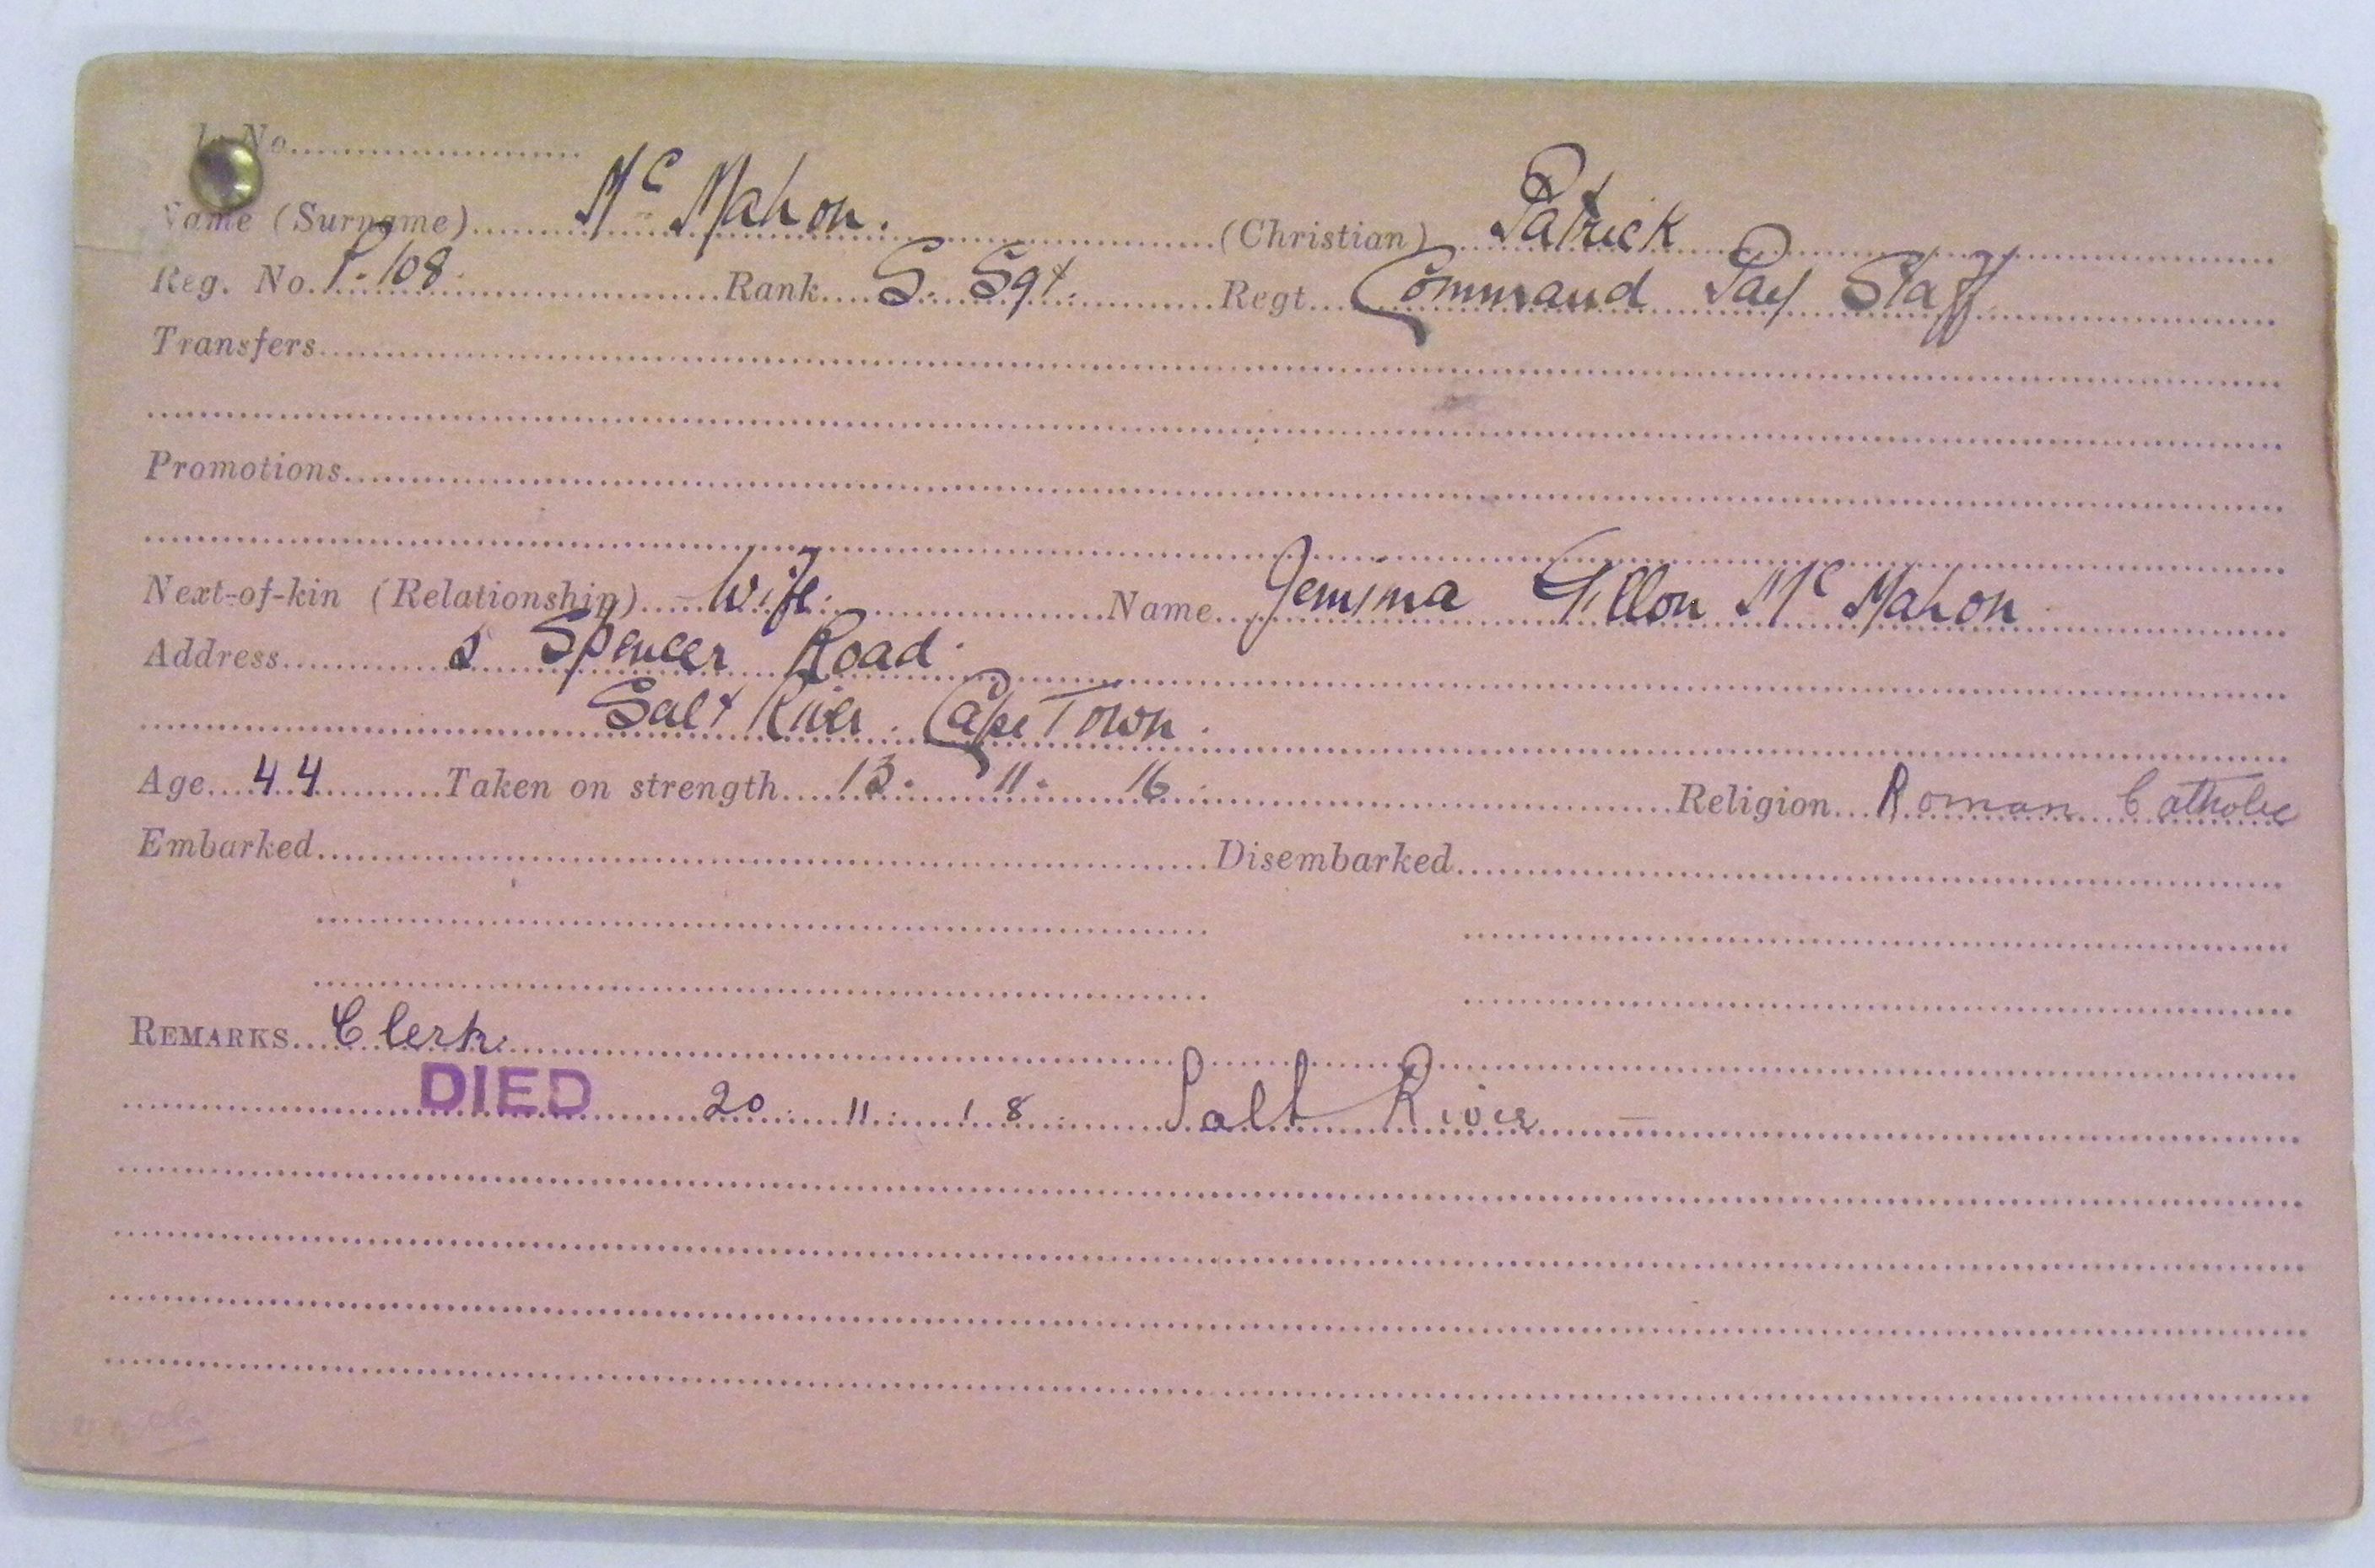 No.
Name (Surname) Mc Mahon. (Christian) Patrick
Reg. No. P. 108. Rank S. Sgt. Regt Command Pay Staff
Transfers
Promotions
Next-of-kin (Relationship) Wife. Name Jemima Fillon Mc Mahon
Address Spencer Road.
Salt River. Cape Town.
Age 44 Taken on strength 13. 11. 16 Religion Roman Catholic
Embarked Disembarked
REMARKS Clerk
DIED 20. 11. 18. Salt River —